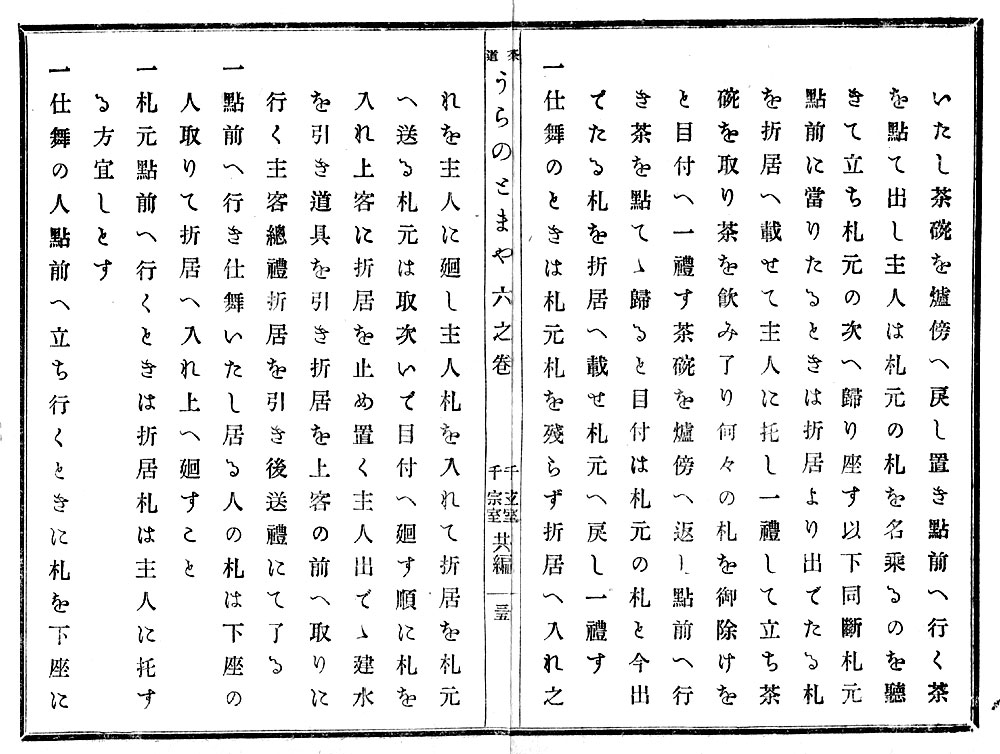 いたし茶碗を爐傍へ戻し置き點前へ行く茶
を點て出し主人は札元の札を名乘るのを聽
きて立ち札元の次へ歸り座す以下同斷札元
點前に當りたるときは折居より出でたる札
を折居へ載せて主人に托し一禮して立ち茶
碗を取り茶を飮み了り何々の札を御除けを
と目付へ一禮す茶碗を爐傍へ返し點前へ行
き茶を點てゝ歸ると目付は札元の札と今出
でたる札を折居へ載せ札元へ戻し一禮す
一仕舞のときは札元札を殘らず折居へ入れ之
茶道 うらのとまや 六之卷 千玄室 千宗室 共編 三五
れを主人に廻し主人札を入れて折居を札元
へ送る札元は取次いで目付へ廻す順に札を
入れ上客に折居を止め置く主人出でゝ建水
を引き道具を引き折居を上客の前へ取りに
行く主客總禮折居を引き後送禮にて了る
一點前へ行き仕舞いたし居る人の札は下座の
人取りて折居へ入れ上へ廻すこと
一札元點前へ行くときは折居札は主人に托す
る方宜しとす
一仕舞の人點前へ立ち行くときに札を下座に